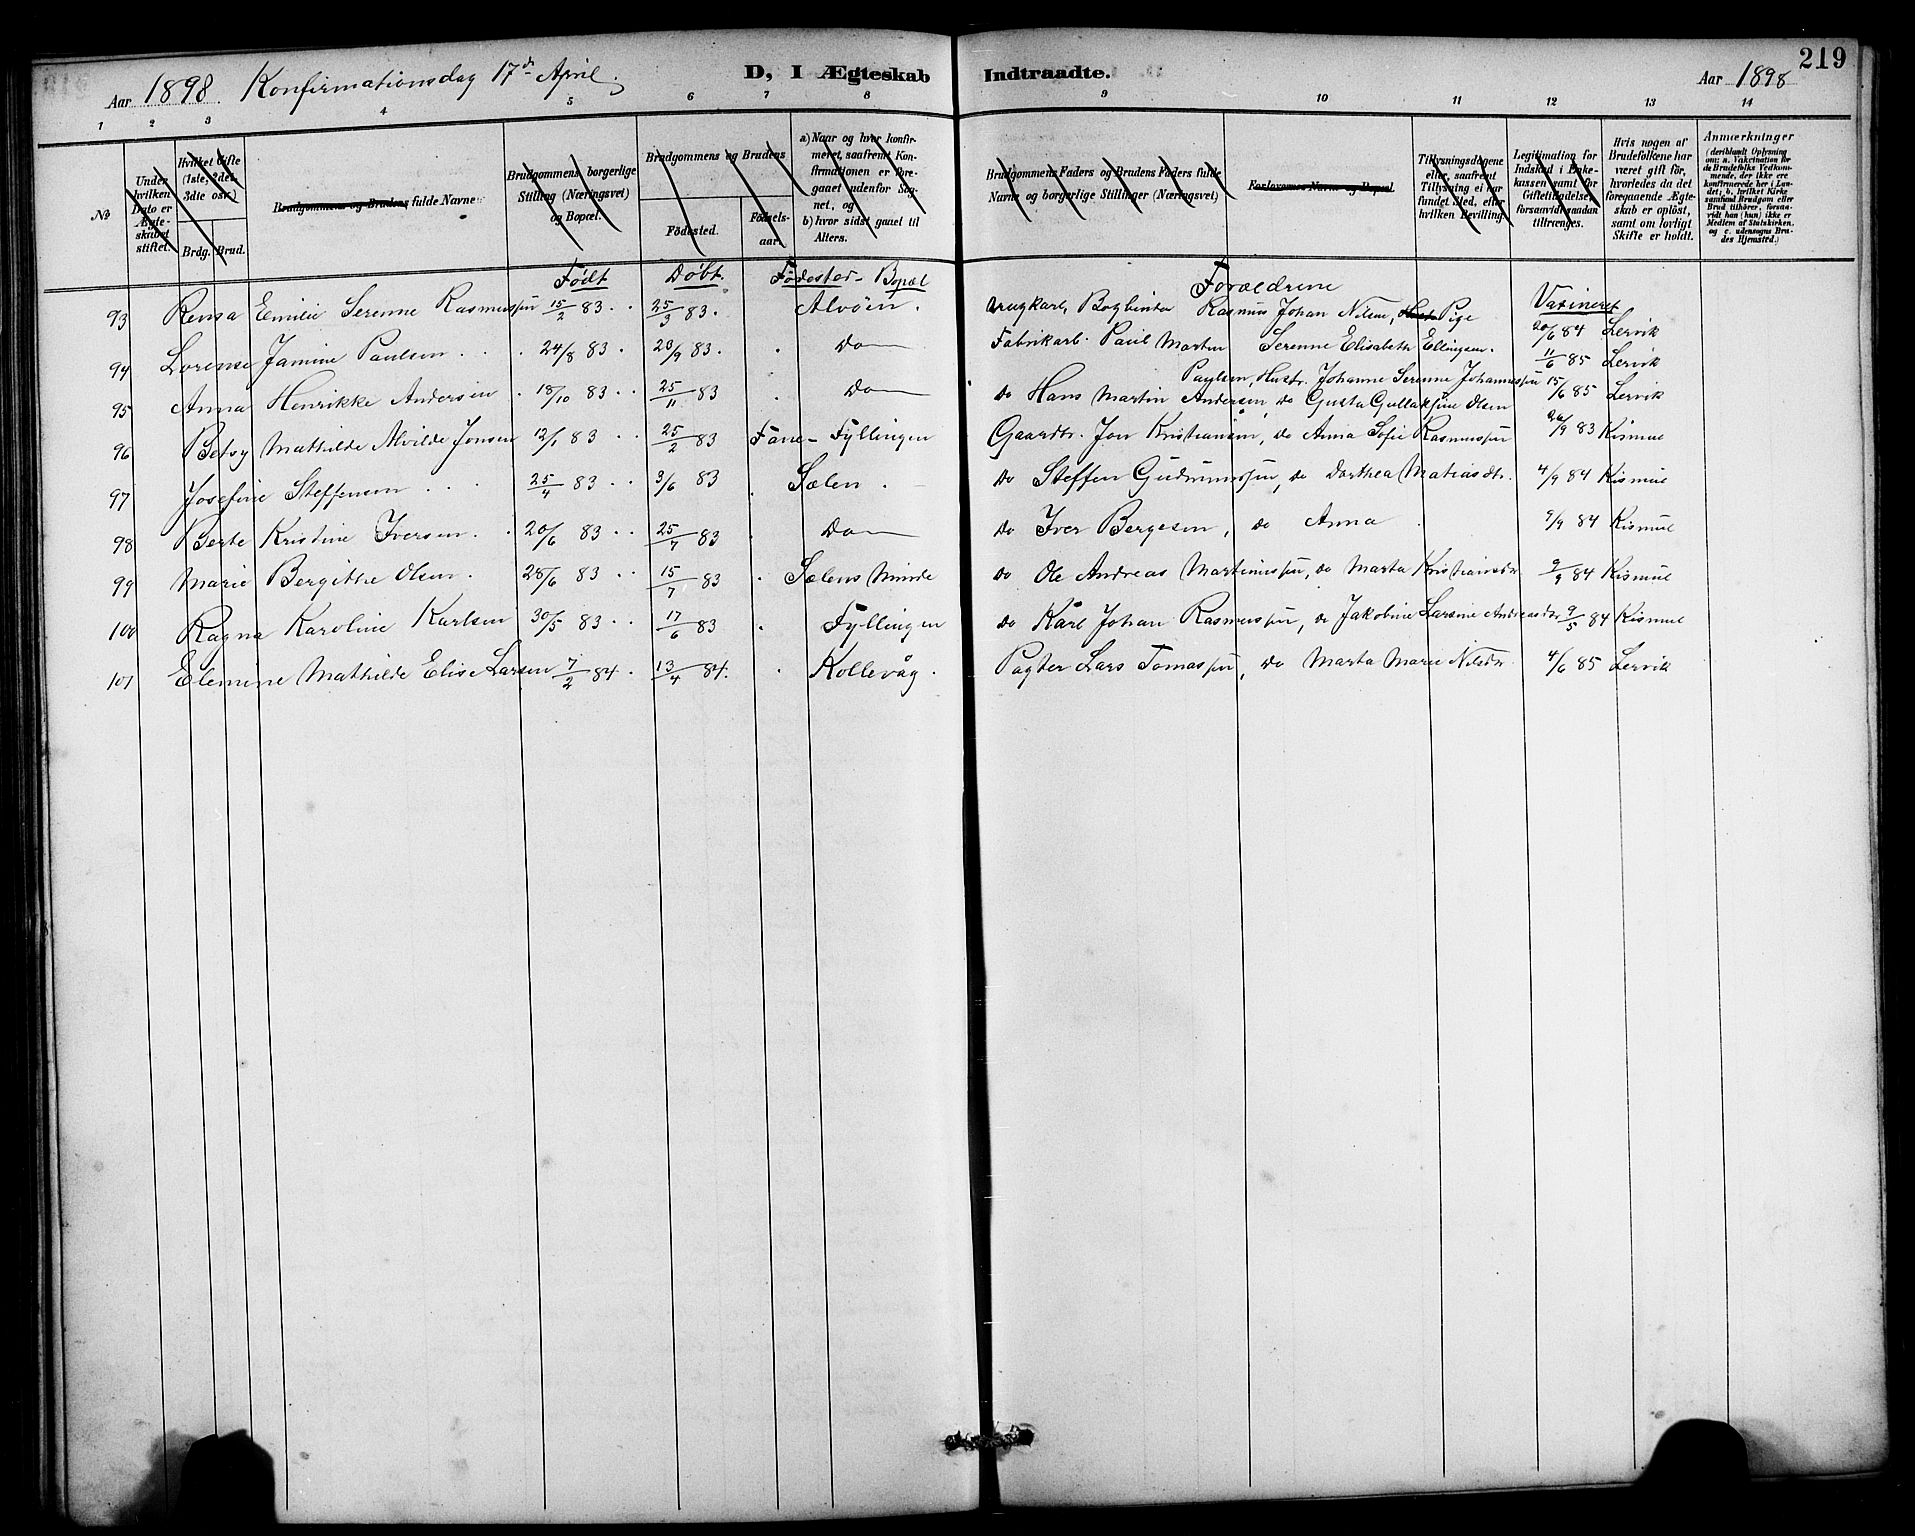 219
Aar 1898 Konfirmationsdag 17de April. D, I Ægteskab Indtraadte. Aar 1898
1 2 3 4 5 6 7 8 9 10 11 12 13 14
No
Under hvilken Dato er Ægteskabet stiftet.
Hvilket Gifte (1ste, 2det, 3die osv.)
Brdg. Brud.
Brudgommens og Brudens fulde Navne
Brudgommens borgerlige Stilling (Næringsvei) og Bopæl.
Brudgommens og Brudens
Fødested. Fødselsaar.
a) Naar og hvor konfirmeret, saafremt Konfirmationen er foregaaet udenfor Sognet, og
b) hvor sidst gaaet til Alters.
Brudgommens Faders og Brudens Faders fulde Navne og borgerlige Stillinger (Næringsvei)
Forlovernes Navne og Bopæl.
Tillysningsdagene eller, saafremt Tillysning ei har fundet Sted, efter hvilken Bevilling.
Legitimation for Indskud i Enkekassen samt for Giftetilladelse, forsaavidt saadan tiltrænges.
Hvis nogen af Brudefolkene har været gift før, hvorledes da det foregaaende Ægteskab er opløst, samt om lovligt Skifte er holdt.
Anmærkninger
(deriblandt Oplysning om: a. Vakcination for de Brudefolks Vedkommende, der ikke ere konfirmerede her i Landet; b. hvilket Kirkesamfund Brudgom eller Brud tilhører, forsaavidt han (hun) ikke er Medlem af Statskirken, og c. udensogns Brudes Hjemsted.)
Født Døbt. Fødested - Bopæl Forældrene Vaxineret
93 Rensa Emilie Serenne Rasmussen 15/2 83. 25/3 83. Alvøen. Brugkarl, Bogbinder Rasmus Johan Nilsen, Pige 20/6 84 Lervik
94 Lorense Jamine Paulsen 24/8 83. 23/9 83. Do Fabrikarb. Paul Martin Serenne Elisabeth Ellingsen. 11/6 85 Lervik
Paulsen, Hustr. Johanne Serenne Johannessen
95 Anna Henrikke Andersen 18/10 83. 25/11 83 Do do Hans Martin Andersen, do Gusta Gullaksine Olsen 15/6 85 Lervik
96 Betsy Mathilde Alvilde Jonsen 12/1 83 25/2 83 Fane - Fyllingen Gaardbr. Jon Kristiansen, do Anna Sofie Rasmussen 26/9 83 Kismul
97 Josefine Steffensen 25/4 83 3/6 83 Sælen. do Steffen Gudmunssen, do Dorthea Matiasdtr. 4/9 84 Kismul
98 Berte Kristine Iversen. 20/6 83 25/7 83 Do do Iver Bergesen, do Anna 9/9 84 Kismul
99 Marie Bergithe Olsen. 28/6 83 15/7 83 Sælens Minde do Ole Andreas Martinussen, do Marta Kristiansdr 9/9 84 Kismul
100 Ragna Karoline Karlsen 30/5 83 17/6 83 Fyllingen do Karl Johan Rasmussen, do Jakobine Larsine Andreasdtr 9/5 84 Kismul
101 Elemine Mathilde Elise Larsen 7/2 84. 13/4 84. Kollevåg. Pagter Lars Tomassen, do Marta Marie Nilsdr. 4/6 85 Lervik